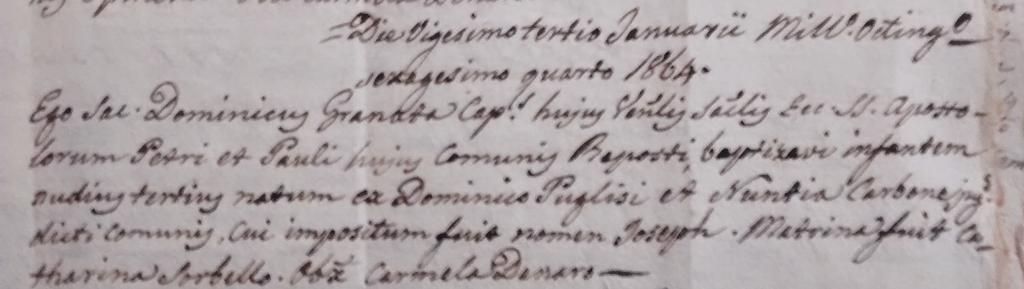 = Die Vigesimo tertio Januarii Mill.º Octing.º
sexagesimo quarto 1864.
Ego Sac. Dominicus Granata Cap.s hujus Ven̄lis Sac̄lis Ecc. SS. Aposto-
lorum Petri et Pauli hujus Comunis Riposti, baptizavi infantem
nudius tertius natum ex Dominico Puglisi et Nuntia Carbone jug.s
dicti Comunis, Cui impositum fuit nomen Joseph. Matrina fuit Ca-
tharina Sorbello. Obx̄ Carmela Denaro —